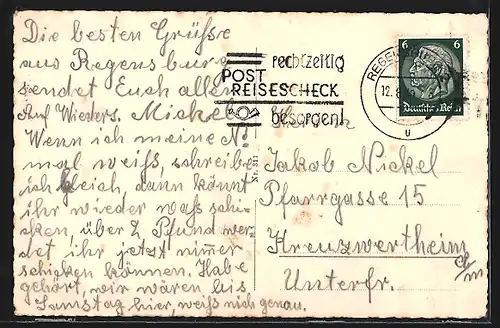 Die besten Grüsse
aus Regensburg
sendet Euch allen
Auf Wieders. Michel
Wenn ich meine N
mal weiß, schreibe
ich gleich, dann könnt
ihr wieder waß schi-
cken, über 2 Pfund wer
det ihr jetzt nimmer
schicken können. Habe
gehört, wir wären bis
Samstag hier, weiß nich genau.
rechtzeitig
POST
REISESCHECK
besorgen!
REGENSBURG
12.
u
6 6
Deutsches Reich
Nr. 331
Jakob Nickel
Pfarrgasse 15
Kreuzwertheim
a/m
Unterfr.